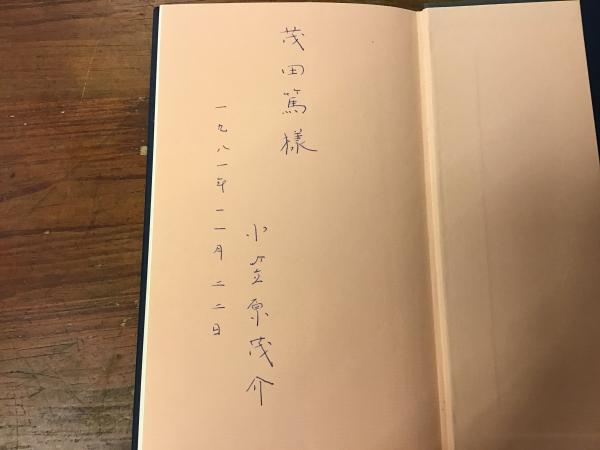 茂田篤様
小笠原茂介
一九八一年一一月二二日